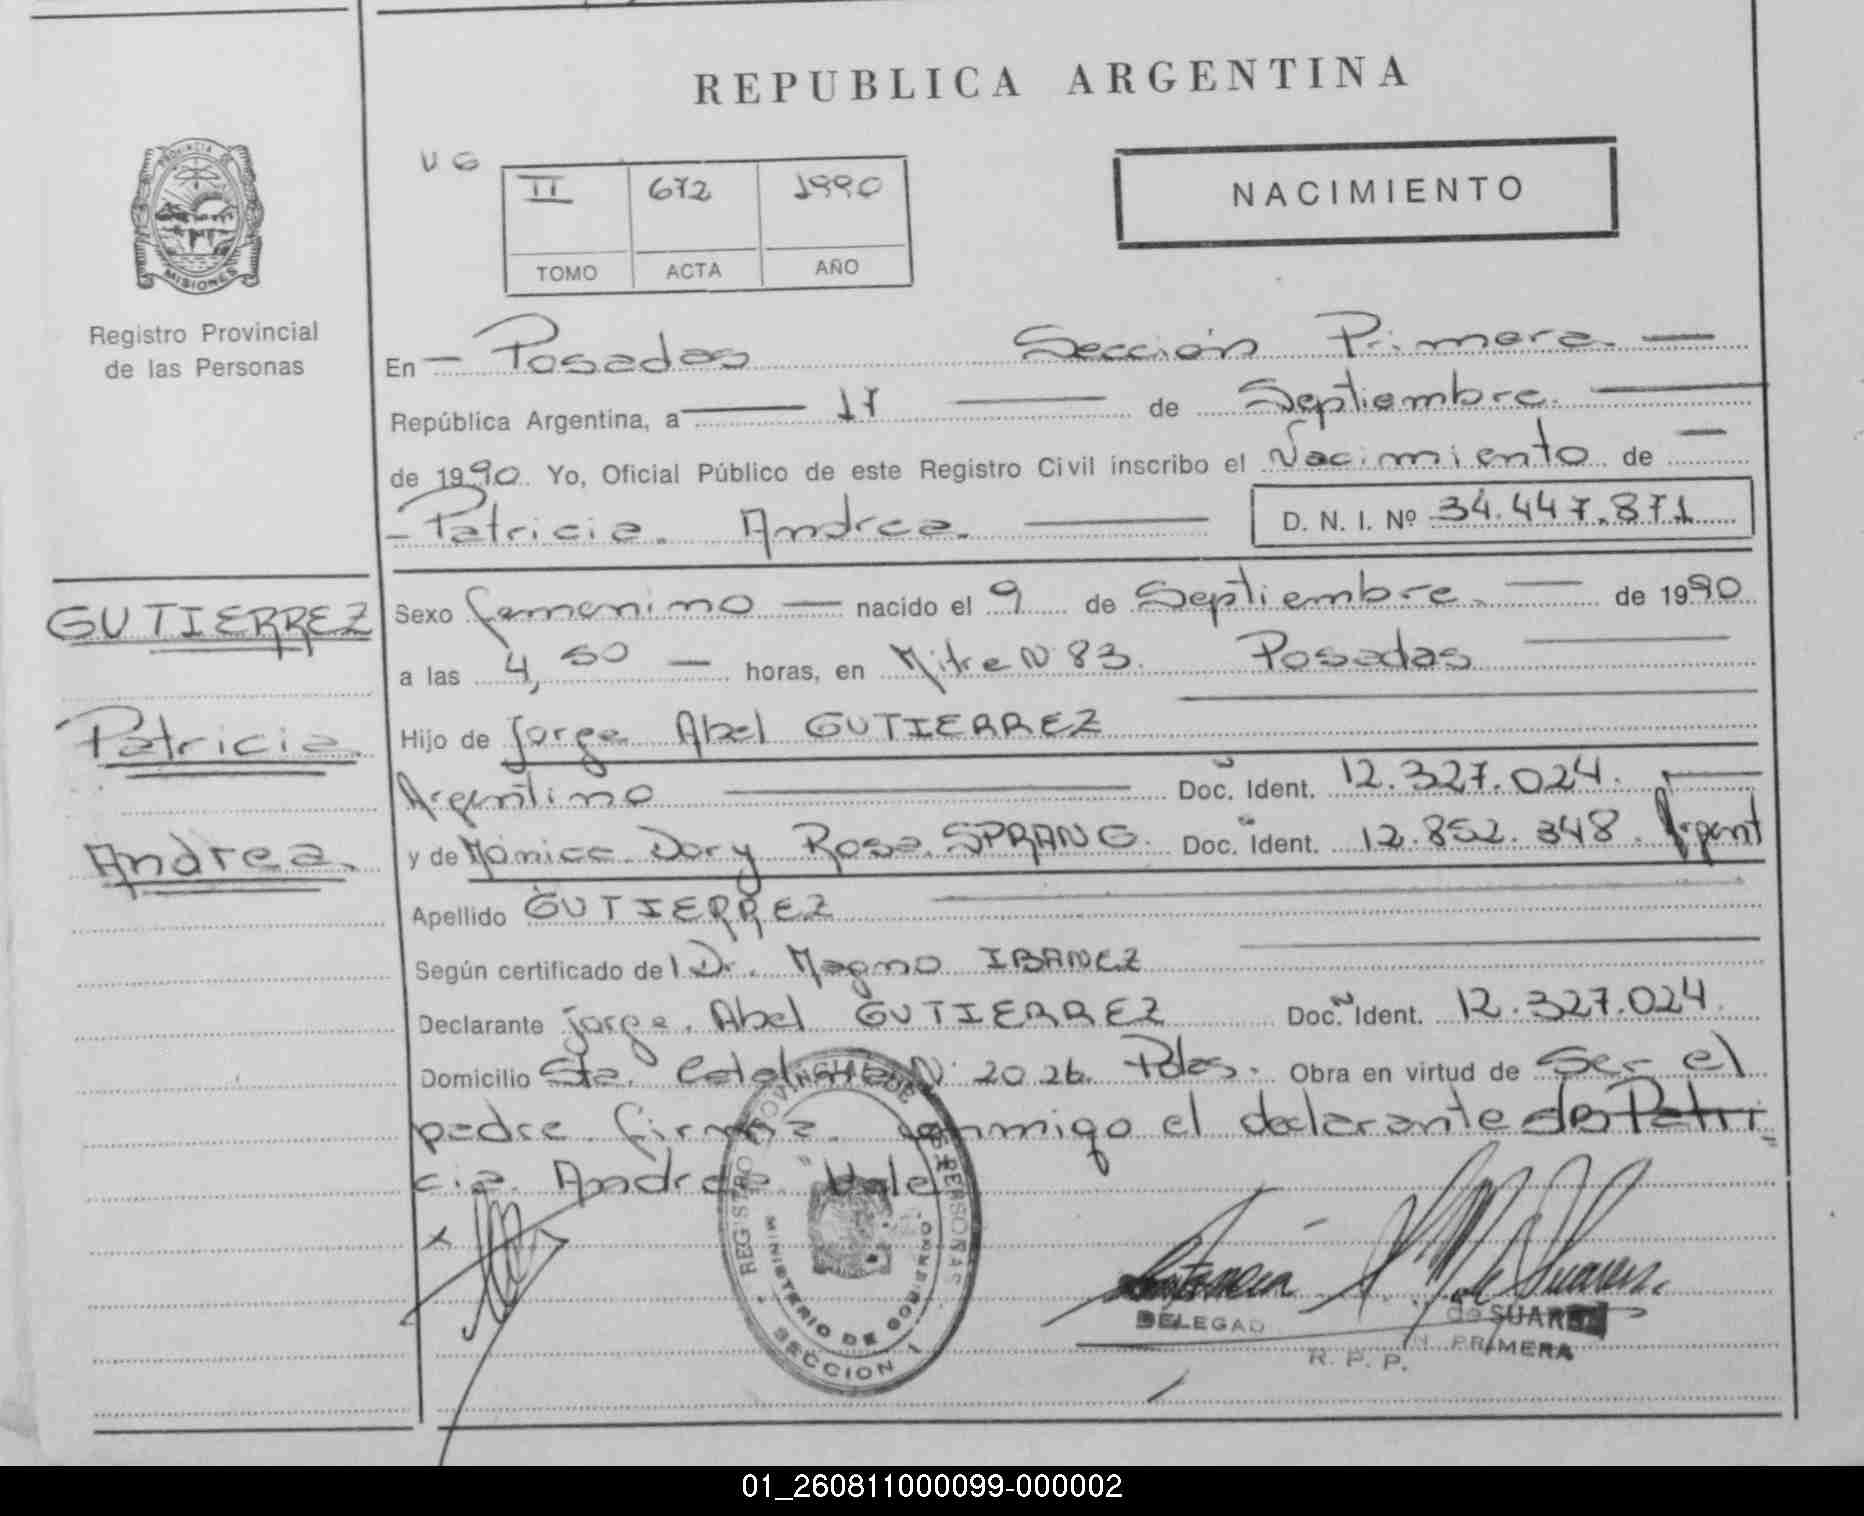 REPUBLICA ARGENTINA
PROVINCIA DE
MISIONES
Registro Provincial
de las Personas
VG
II 672 1990
TOMO ACTA AÑO
NACIMIENTO
En — Posadas Sección Primera —
República Argentina, a — 17 — de Septiembre —
de 1990 Yo, Oficial Público de este Registro Civil inscribo el Nacimiento de —
- Patricia Andrea — D. N. I. Nº 34.447.871
GUTIERREZ
Patricia
Andrea
Sexo femenino — nacido el 9 de Septiembre — de 1990
a las 4,50 — horas, en Mitre N 83. Posadas —
Hijo de Jorge Abel GUTIERREZ
Argentino — Doc. Ident. 12.327.024. —
y de Monica Dory Rosa SPRANG. Doc. Ident. 12.852.348. Argent
Apellido GUTIERREZ —
Según certificado del Dr. Magno IBANEZ —
Declarante Jorge Abel GUTIERREZ Doc. Ident. 12.327.024.
Domicilio Sta. Catalina N 2026 Pdas. Obra en virtud de Ser el
padre firma conmigo el declarante de Patri-
cia Andrea Vale
REGISTRO PROVINCIAL DE LAS PERSONAS
MINISTERIO DE GOBIERNO
SECCION 1
de Suarez
DELEGAD de SUAREZ
N PRIMERA
R. P. P.
01_260811000099-000002